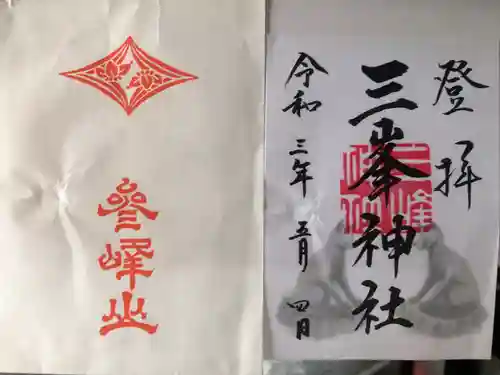 參峰山
登拝
三峯神社
令和三年五月四日